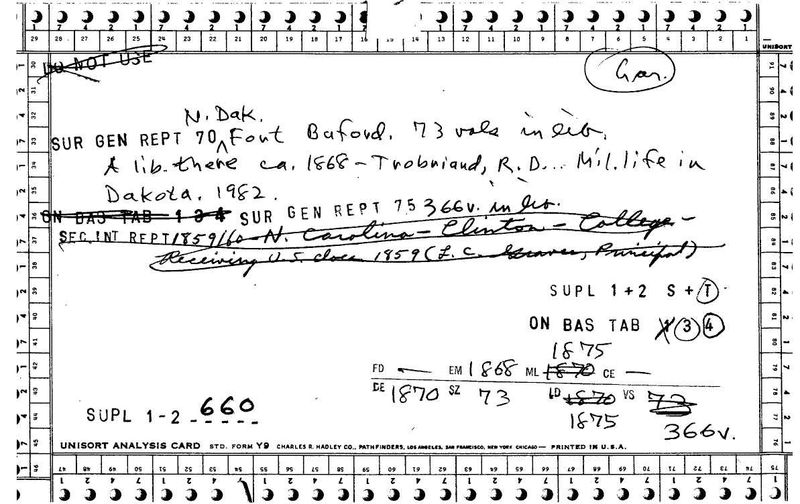 UNISORT
DO NOT USE
Gar.
N. Dak.
SUR GEN REPT 70 Fort Buford. 73 vols in lib.
A lib. there ca. 1868 - Trobriand, R. D... Mil. life in
Dakota. 1982.
ON BAS TAB 1 3 4 SUR GEN REPT 75 366v. in lib.
SEC. INT REPT 1859/60 - N. Carolina - Clinton - College -
Receiving U.S. docs 1859 (L. C. Graves, Principal)
SUPL 1+2 S + T
ON BAS TAB 1 3 4
1875
FD — EM 1868 ML 1870 CE —
DE 1870 SZ 73 LD 1870 VS 73
SUPL 1-2 660
1875
366v.
UNISORT ANALYSIS CARD STD. FORM Y9 CHARLES R. HADLEY CO., PATHFINDERS, LOS ANGELES, SAN FRANCISCO, NEW YORK CHICAGO — PRINTED IN U.S.A.